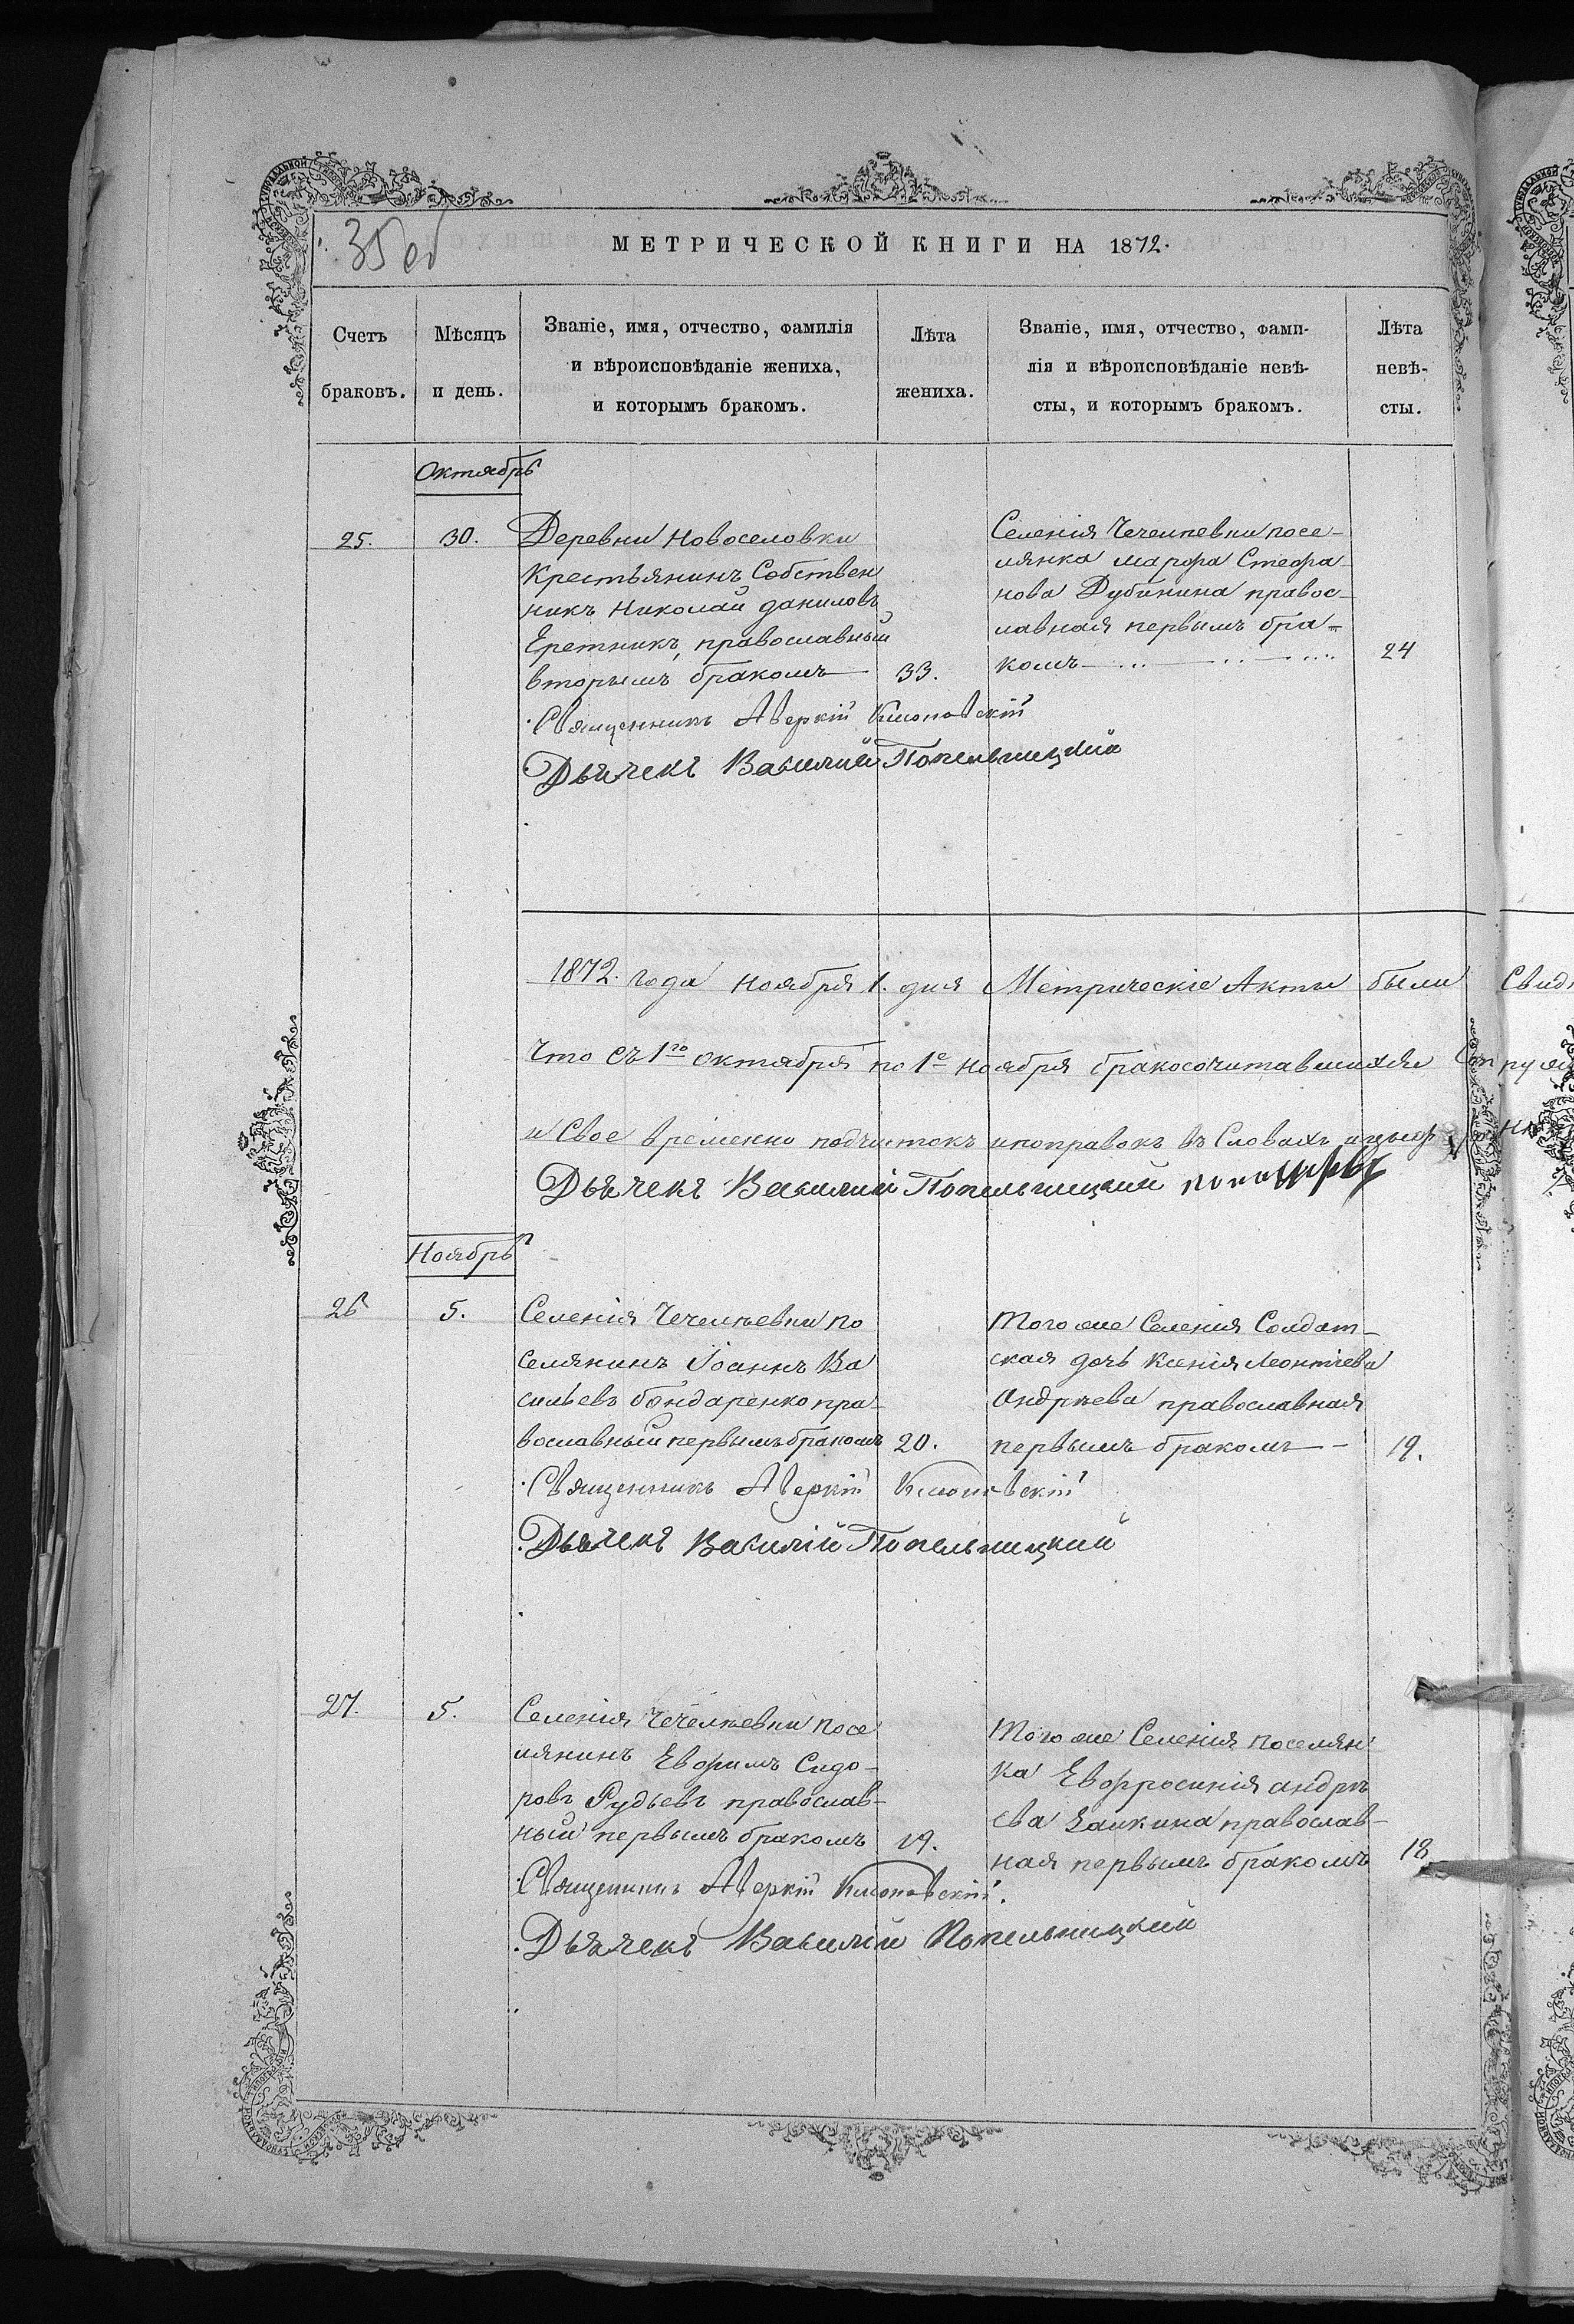 35 об
МЕТРИЧЕСКОЙ КНИГИ НА 1872.
Счетъ браковъ.
Мѣсяцъ и день.
Званіе, имя, отчество, фамилія
и вѣроисповѣданіе жениха,
и которымъ бракомъ.
Лѣта жениха.
Званіе, имя, отчество, фами-
лія и вѣроисповѣданіе невѣ-
сты, и которымъ бракомъ.
Лѣта невѣ-
сты.
Октябрь
25.
30.
Деревни Новоселовки
Крестьянинъ Собствен
никъ Николай Даниловъ
Еретникъ, православный
вторымъ бракомъ
33.
Селенія Чечелиевки посе-
лянка Марфа Стефа-
нова Дубинина правос-
лавная первымъ бра-
комъ
24
Священникъ Аверкій
Дьячекъ Василий Попельницкий
1872. года ноября 1. дня Метрическіе Акты были
что съ 1го октября по 1е ноября бракосочитавшихся
и Свое временно подчистокъ и поправокъ въ Словахъ и
Дьячекъ Василий Попельницкий
Ноябрь
26
5.
Селенія Чечелиевки по
селянинъ Іоаннъ Ва
сильевъ Бондаренко пра-
вославный первымъ бракомъ
20.
Того же Селенія Солдат-
ская дочь Ксенія Леонтіева
Андреева православная
первымъ бракомъ
19.
Священникъ Аверкій
Дьячекъ Василій Попельницкий
27.
5.
Селенія Чечелиевки посе
лянинъ Евфимъ Сидо-
ровъ Рудьевъ православ-
ный первымъ бракомъ
19.
Того же Селенія поселян
ка Евфросинія Андре
ева Заикина православ-
ная первымъ бракомъ
18
Священникъ Аверкій
Дьячекъ Василій Попельницкий